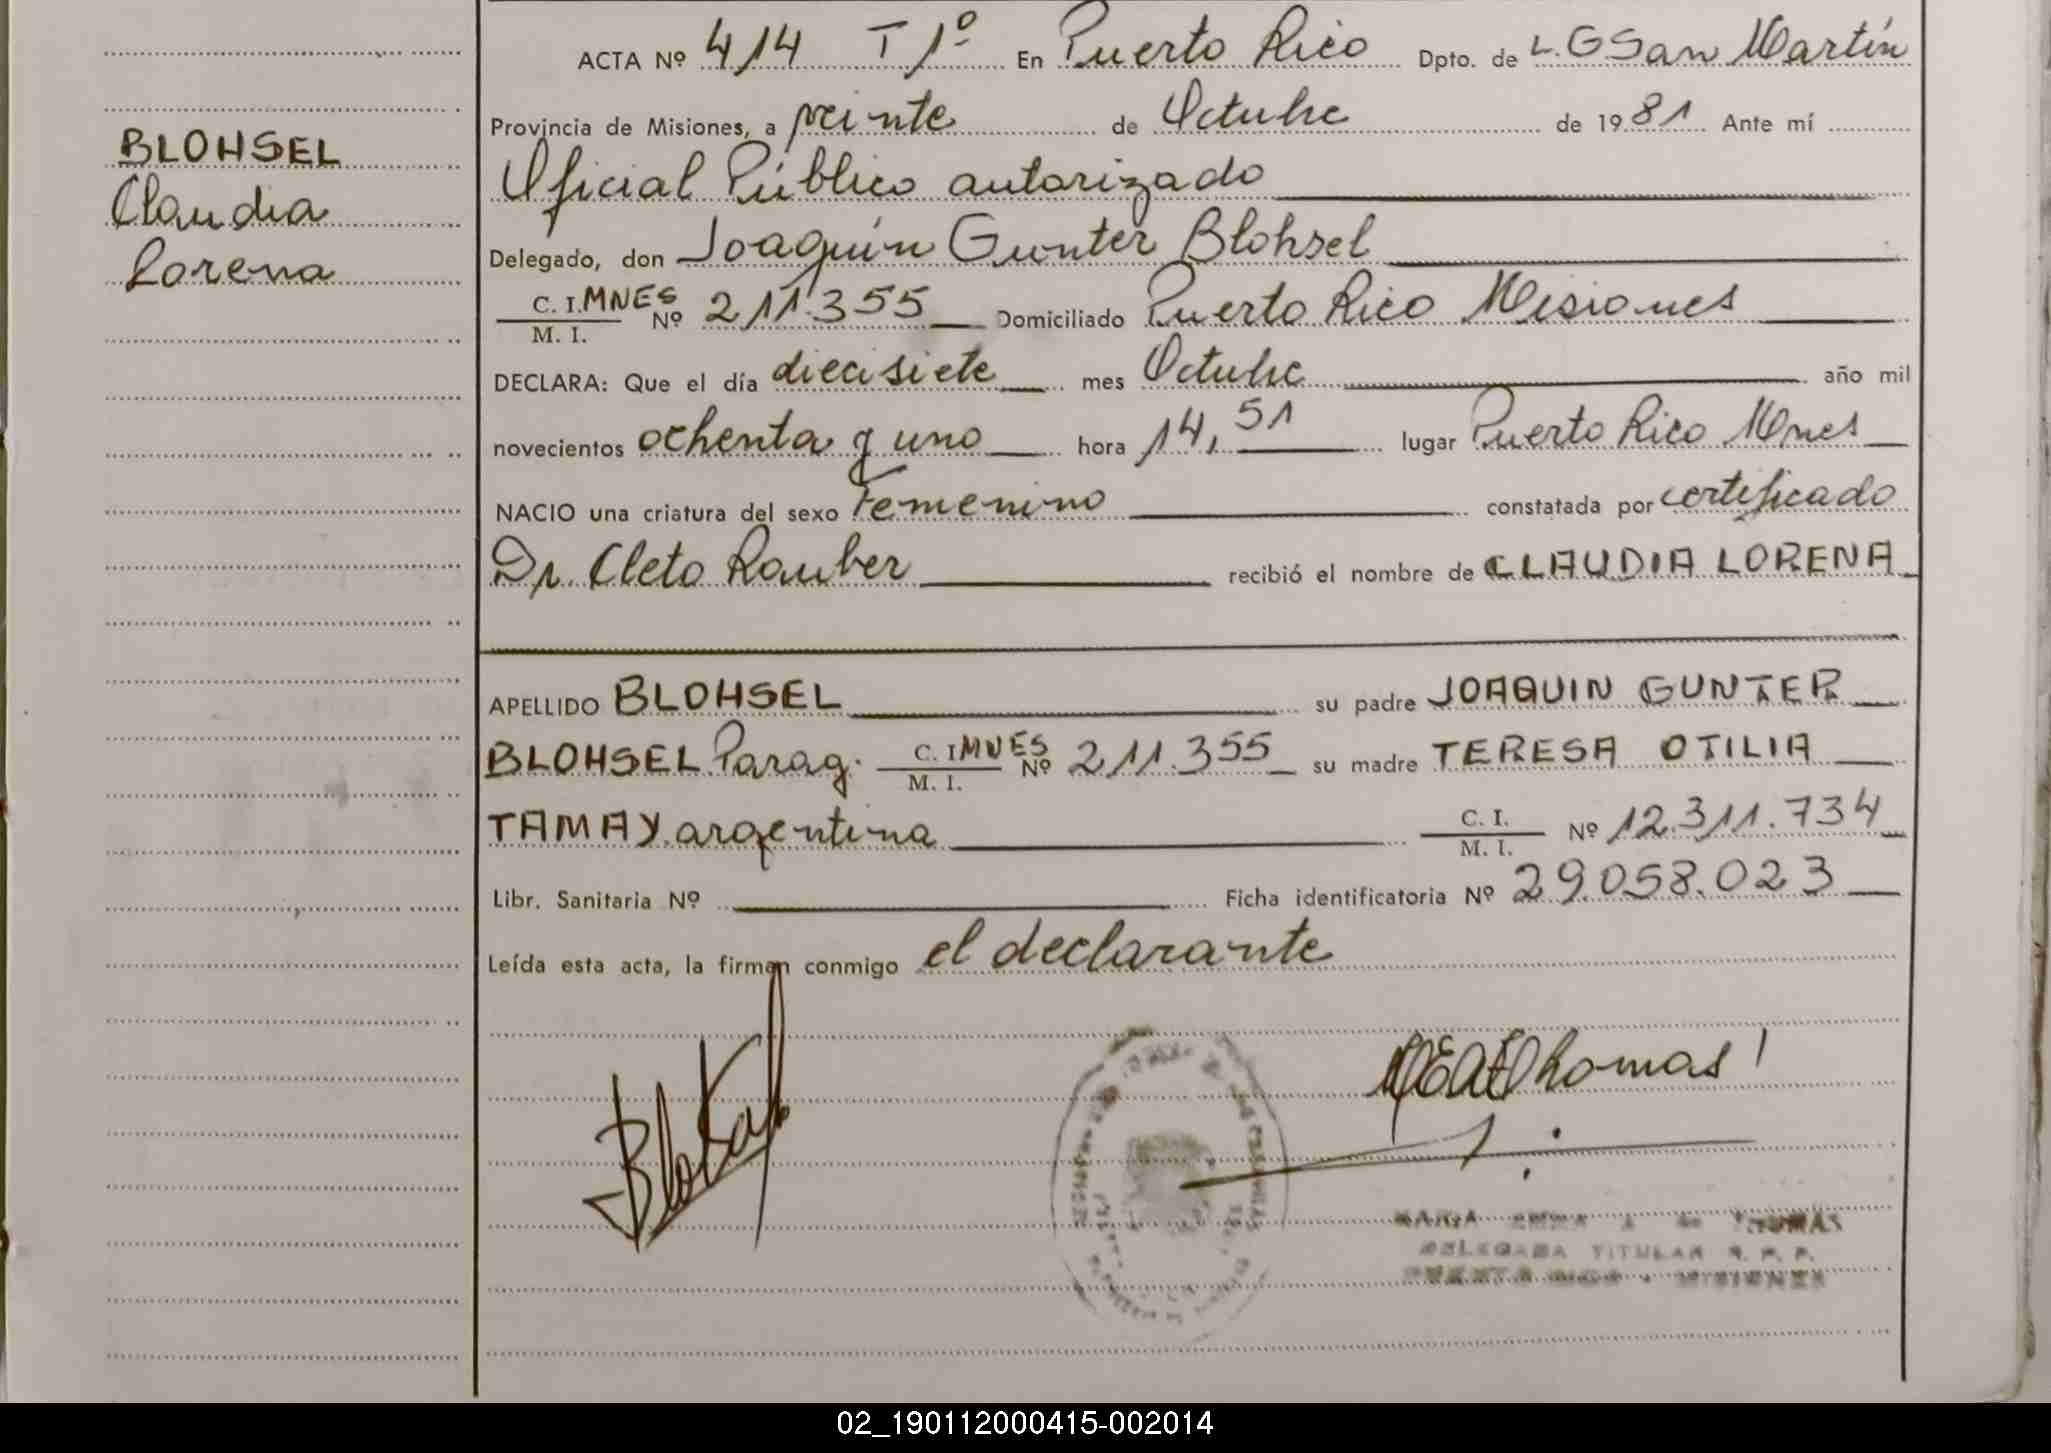 BLOHSEL
Claudia
Lorena
ACTA Nº 414 T 1º En Puerto Rico Dpto. de L.G San Martín
Provincia de Misiones, a veinte de Octubre de 1981 Ante mí
Oficial Público autorizado
Delegado, don Joaquín Gunter Blohsel
C. I. MNES Nº 211.355 Domiciliado Puerto Rico Misiones
M. I.
DECLARA: Que el día diecisiete mes Octubre año mil
novecientos ochenta y uno hora 14,51 lugar Puerto Rico Mnes
NACIO una criatura del sexo Femenino constatada por certificado
Dr. Cleto Rauber recibió el nombre de CLAUDIA LORENA
APELLIDO BLOHSEL su padre JOAQUIN GUNTER
BLOHSEL Parag. C. I. MNES Nº 211.355 su madre TERESA OTILIA
M. I.
TAMAY argentina C. I. Nº 12.311.734
M. I.
Libr. Sanitaria Nº Ficha identificatoria Nº 29.058.023
Leída esta acta, la firman conmigo el declarante
Thomas
MARIA THOMAS
DELEGADA TITULAR R. P. P.
PUERTO RICO - MISIONES
02_190112000415-002014